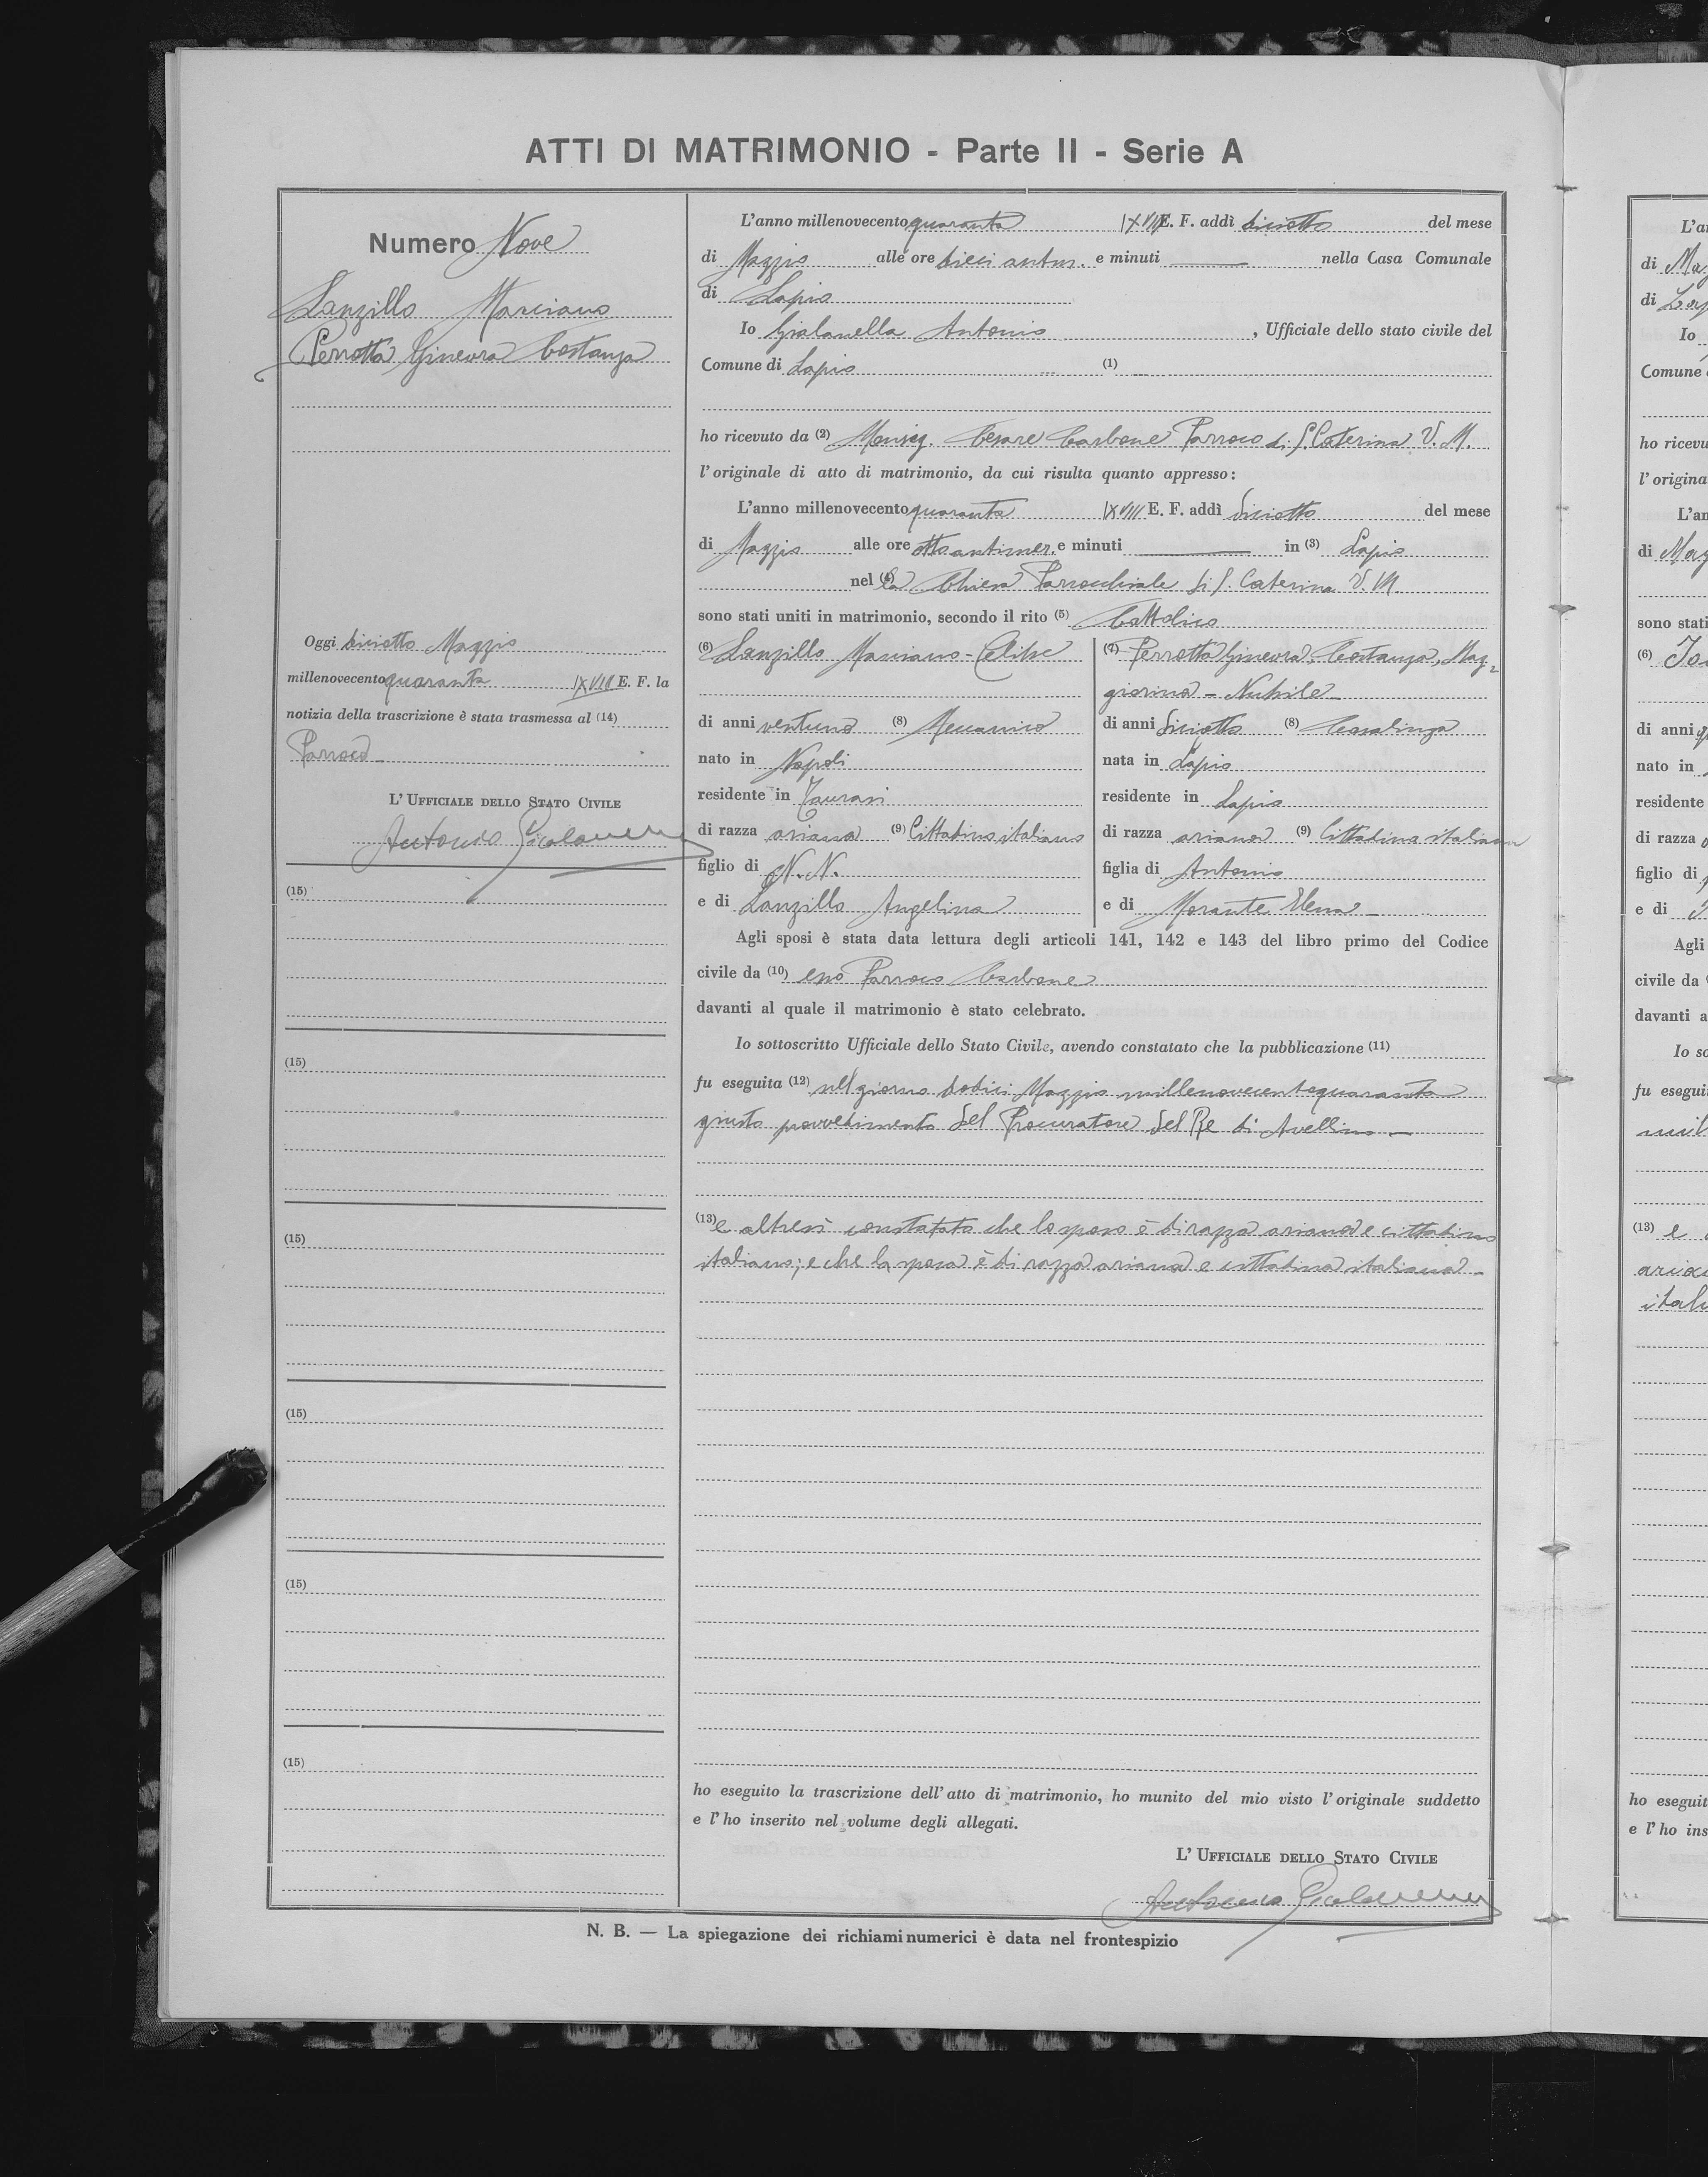 ATTI DI MATRIMONIO - Parte II - Serie A
Numero Nove
Lanzillo Marciano
Perrotta Ginevra Costanza
Oggi diciotto Maggio
millenovecento quaranta XVIII E. F. la
notizia della trascrizione è stata trasmessa al (14)
Parroco
L' UFFICIALE DELLO STATO CIVILE
Antonio Gialanella
(15)
(15)
(15)
(15)
(15)
(15)
L'anno millenovecento quaranta XVIII E. F. addì diciotto del mese
di Maggio alle ore dieci antim. e minuti — nella Casa Comunale
di Lapio
Io Gialanella Antonio, Ufficiale dello stato civile del
Comune di Lapio (1)
ho ricevuto da (2) Monsig. Cesare Carbone Parroco di S. Caterina V. M.
l'originale di atto di matrimonio, da cui risulta quanto appresso:
L'anno millenovecento quaranta XVIII E. F. addì diciotto del mese
di Maggio alle ore otto antimer. e minuti — in (3) Lapio
nel (4) la Chiesa Parrocchiale di S. Caterina V. M
sono stati uniti in matrimonio, secondo il rito (5) Cattolico
(6) Lanzillo Marciano - Celibe
di anni ventuno (8) Meccanico
nato in Napoli
residente in Taurasi
di razza ariana (9) Cittadino italiano
figlio di N. N.
e di Lanzillo Angelina
(7) Perrotta Ginevra, Costanza, Mag-
giorina - Nubile
di anni diciotto (8) Casalinga
nata in Lapio
residente in Lapio
di razza ariana (9) Cittadina italiana
figlia di Antonio
e di Morante Elena
Agli sposi è stata data lettura degli articoli 141, 142 e 143 del libro primo del Codice
civile da (10) esso Parroco Carbone
davanti al quale il matrimonio è stato celebrato.
Io sottoscritto Ufficiale dello Stato Civile, avendo constatato che la pubblicazione (11)
fu eseguita (12) nel giorno dodici Maggio millenovecentoquaranta
giusto provvedimento del Procuratore del Re di Avellino —
(13) e altresì constatato che lo sposo è di razza ariana e cittadino
italiano; e che la sposa è di razza ariana e cittadina italiana -
ho eseguito la trascrizione dell'atto di matrimonio, ho munito del mio visto l'originale suddetto
e l'ho inserito nel volume degli allegati.
L' UFFICIALE DELLO STATO CIVILE
Antonio Gialanella
N. B. — La spiegazione dei richiami numerici è data nel frontespizio
L'a
di Ma
di Lap
Io
Comune
ho ricevu
l'origina
L'an
di Mag
sono stati
(6)
di anni
nato in
residente
di razza
figlio di
e di
Agli
civile da
davanti a
Io so
fu esegui
mil
(13) e
aria
itali
ho eseguit
e l'ho ins